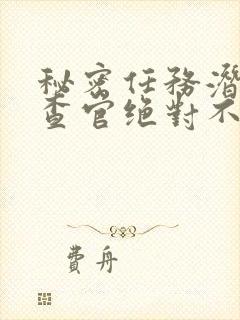 秘密任務潛
查官绝對不
費舟